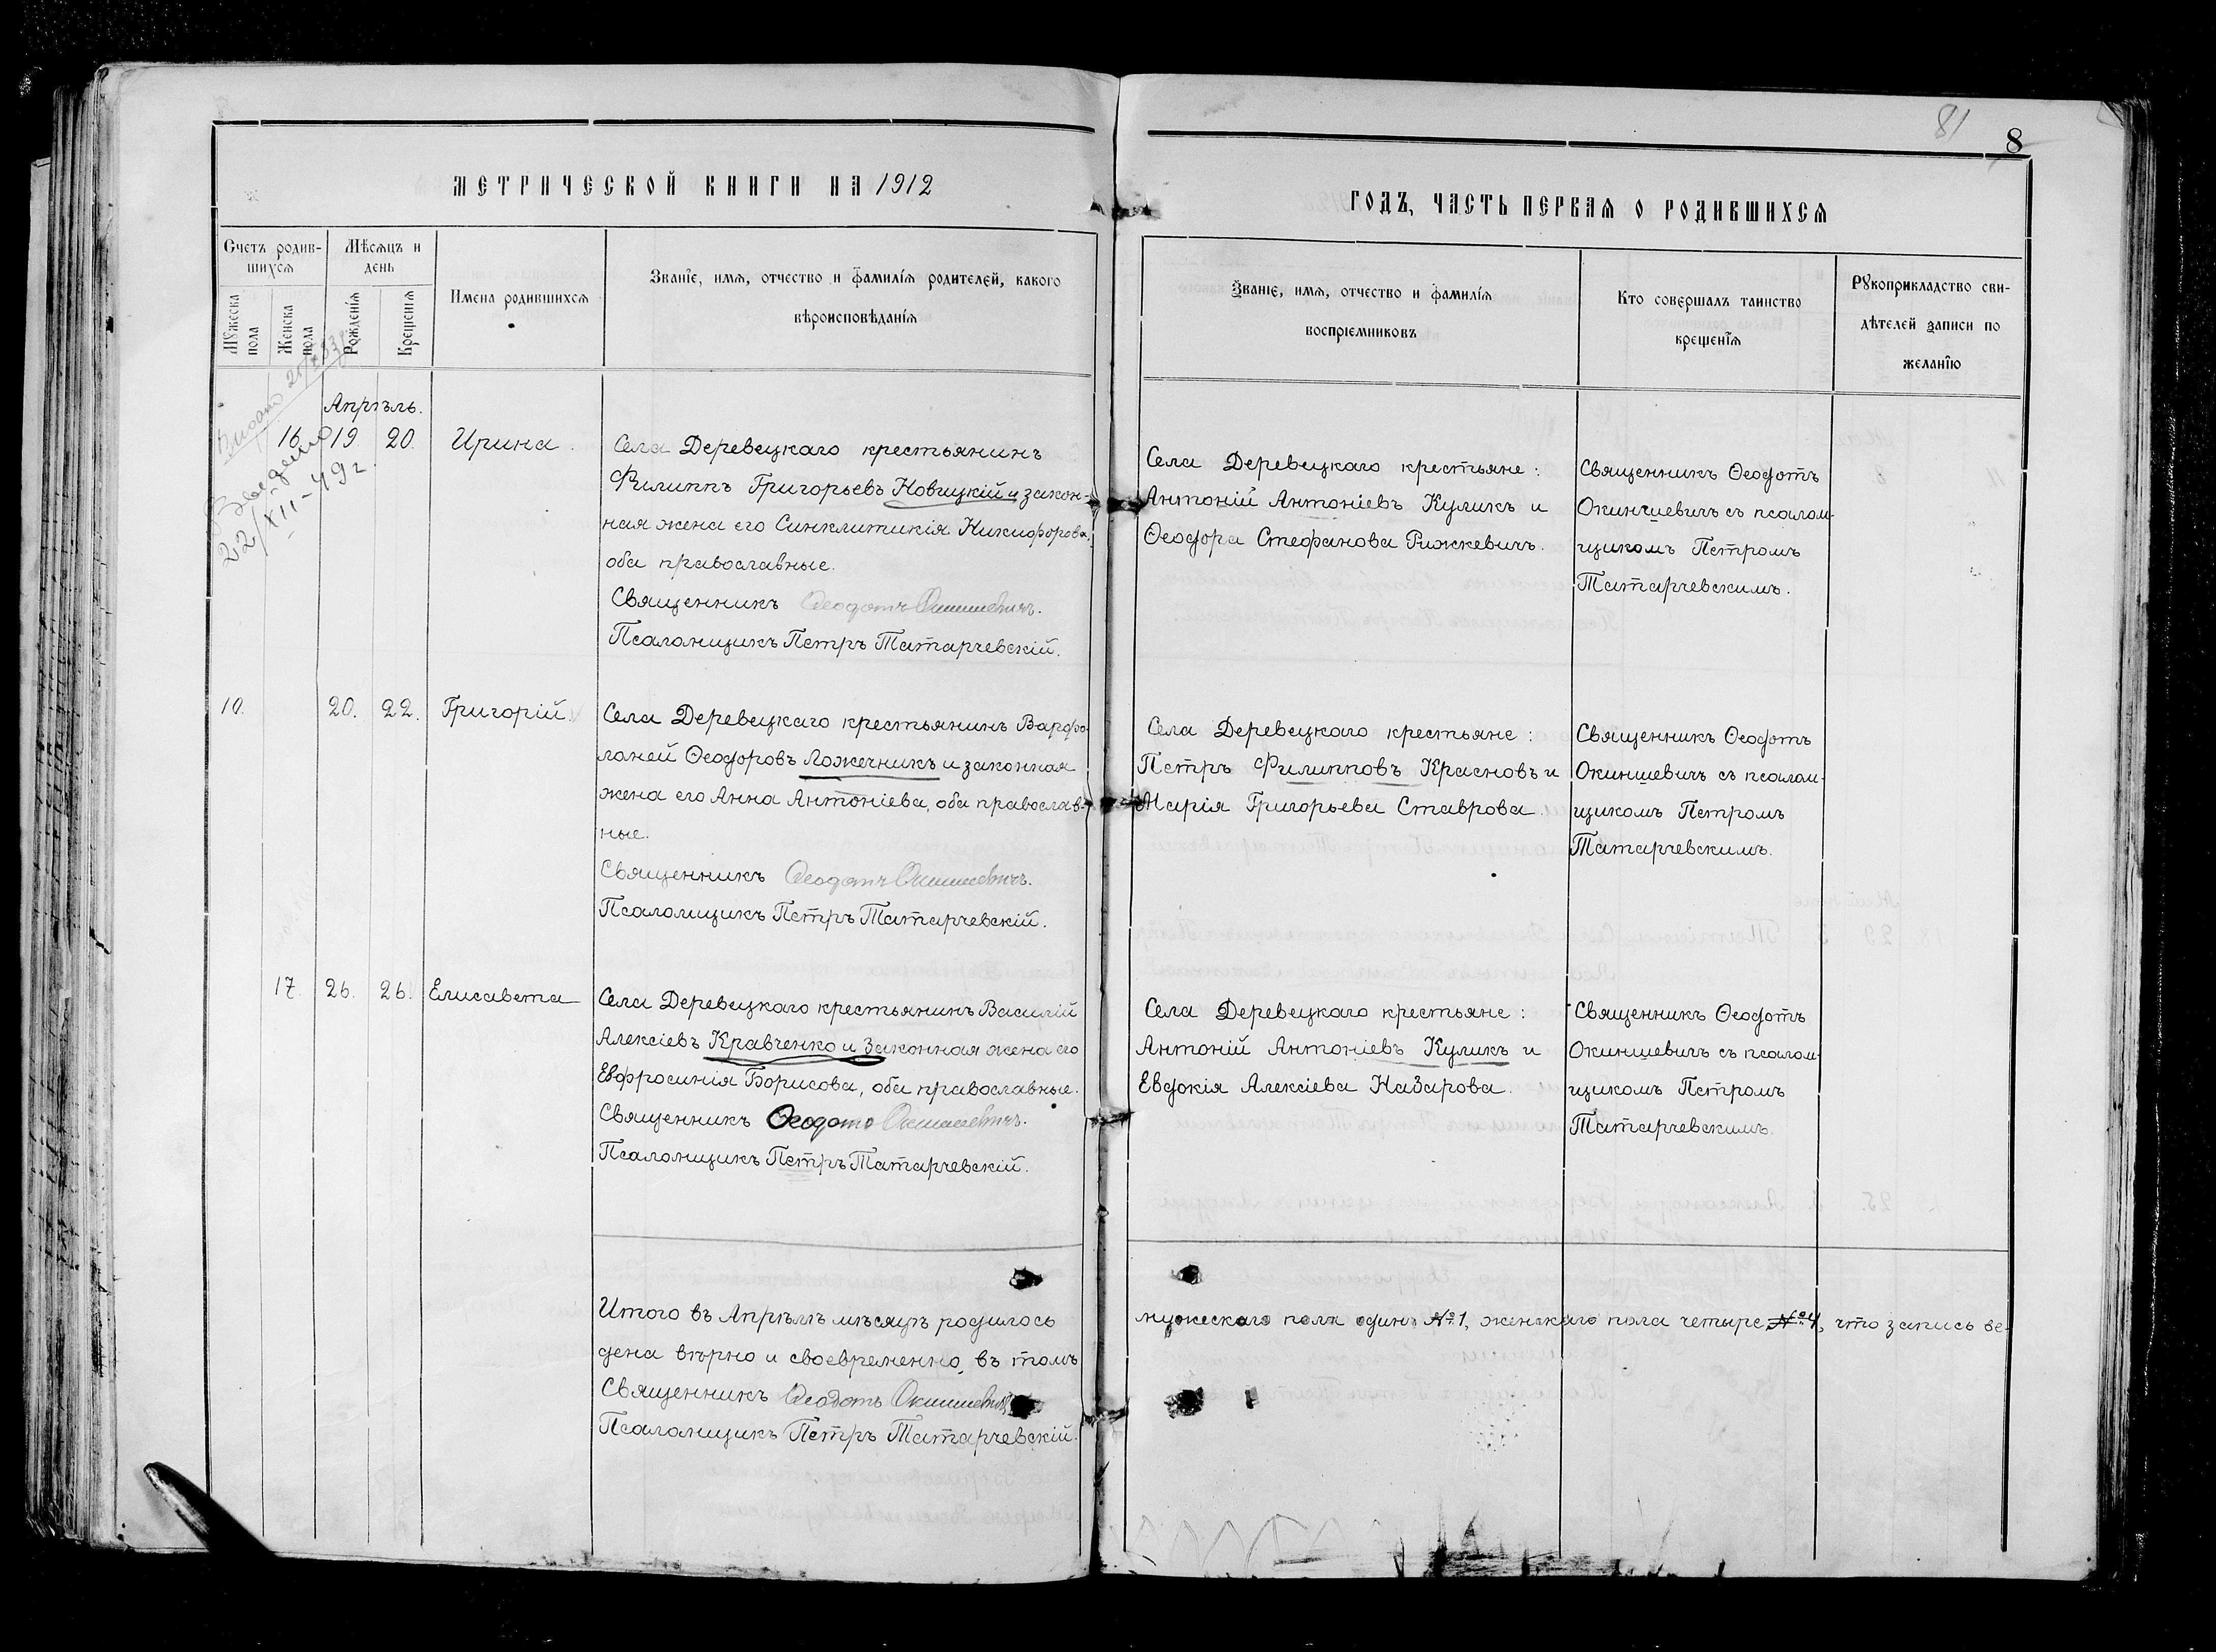 81
8
МЕТРИЧЕСКОЙ КНИГИ НА 1912
ГОДЪ, ЧАСТЬ ПЕРВАЯ О РОДИВШИХСЯ
Счетъ родив-
шихся
Мѣсяцъ и
день
Мужеска
пола
Женска
пола
Рожденія
Крещенія
Имена родившихся
Званіе, имя, отчество и фамилія родителей, какого
вѣроисповѣданія
Званіе, имя, отчество и фамилія
воспріемниковъ
Кто совершалъ таинство
крещенія
Рукоприкладство сви-
дѣтелей записи по
желанію
22/XII-49г.
Апрѣль.
16 19 20. Ирина.
Села Деревецкаго крестьянинъ
Филиппъ Григорьевъ Новицкій и закон-
ная жена его Синклитикія Никифорова,
оба православные.
Священникъ Ѳеодотъ Окиншевичъ.
Псаломщикъ Петръ Татарчевскій.
Села Деревецкаго крестьяне:
Антоній Антоніевъ Куликъ и
Ѳеодора Стефанова Рижкевичъ.
Священникъ Ѳеодотъ
Окиншевичъ съ псалом-
щикомъ Петромъ
Татарчевскимъ.
10. 20. 22. Григорій.
Села Деревецкаго крестьянинъ Варфо-
ломей Ѳеодоровъ Ложечникъ и законная
жена его Анна Антоніева, оба православ-
ные.
Священникъ Ѳеодотъ Окиншевичъ.
Псаломщикъ Петръ Татарчевскій.
Села Деревецкаго крестьяне:
Петръ Филипповъ Красновъ и
Марія Григорьева Ставрова.
Священникъ Ѳеодотъ
Окиншевичъ съ псалом-
щикомъ Петромъ
Татарчевскимъ.
17. 26. 26. Елисавета
Села Деревецкаго крестьянинъ Василій
Алексіевъ Кравченко и законная жена его
Евфросинія Борисова, оба православные.
Священникъ Ѳеодотъ Окиншевичъ.
Псаломщикъ Петръ Татарчевскій.
Села Деревецкаго крестьяне:
Антоній Антоніевъ Куликъ и
Евдокія Алексіева Назарова.
Священникъ Ѳеодотъ
Окиншевичъ съ псалом-
щикомъ Петромъ
Татарчевскимъ.
Итого въ Апрѣлѣ мѣсяцѣ родилось
мужескаго пола одинъ №1, женскаго пола четыре №4, что запись ве-
дена вѣрно и своевременно, въ томъ
Священникъ Ѳеодотъ Окиншевичъ
Псаломщикъ Петръ Татарчевскій.